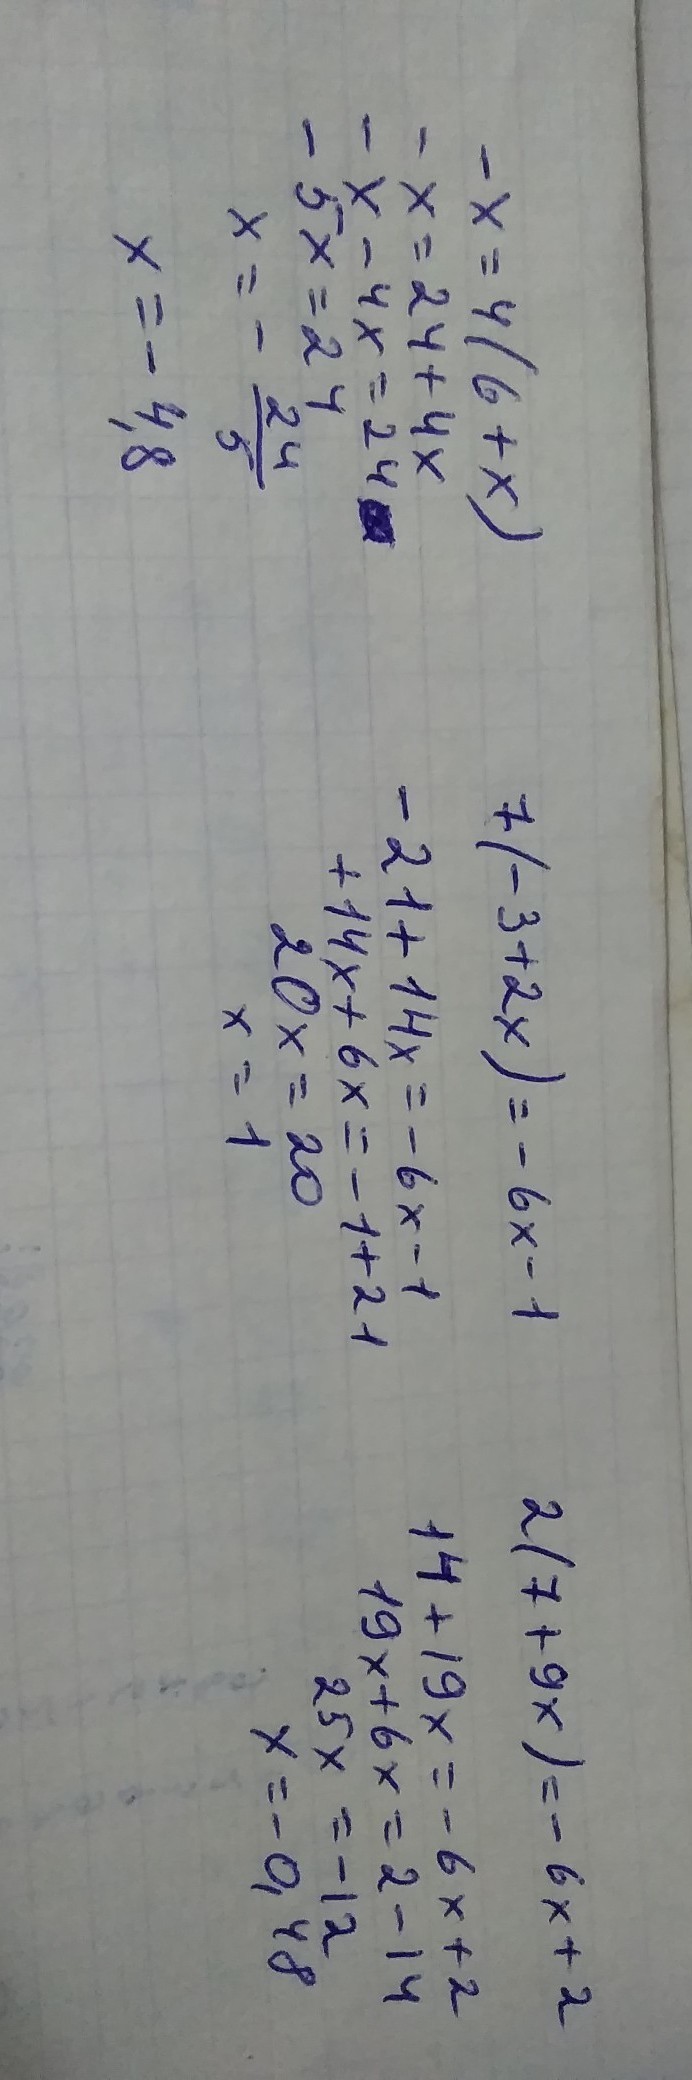 -x=4(6+x)
-x=24+4x
-x-4x=24
-5x=24
x=-24/5
x=-4,8
7(-3+2x)=-6x-1
-21+14x=-6x-1
+14x+6x=-1+21
20x=20
x=1
2(7+9x)=-6x+2
14+19x=-6x+2
19x+6x=2-14
25x=-12
x=-0,48